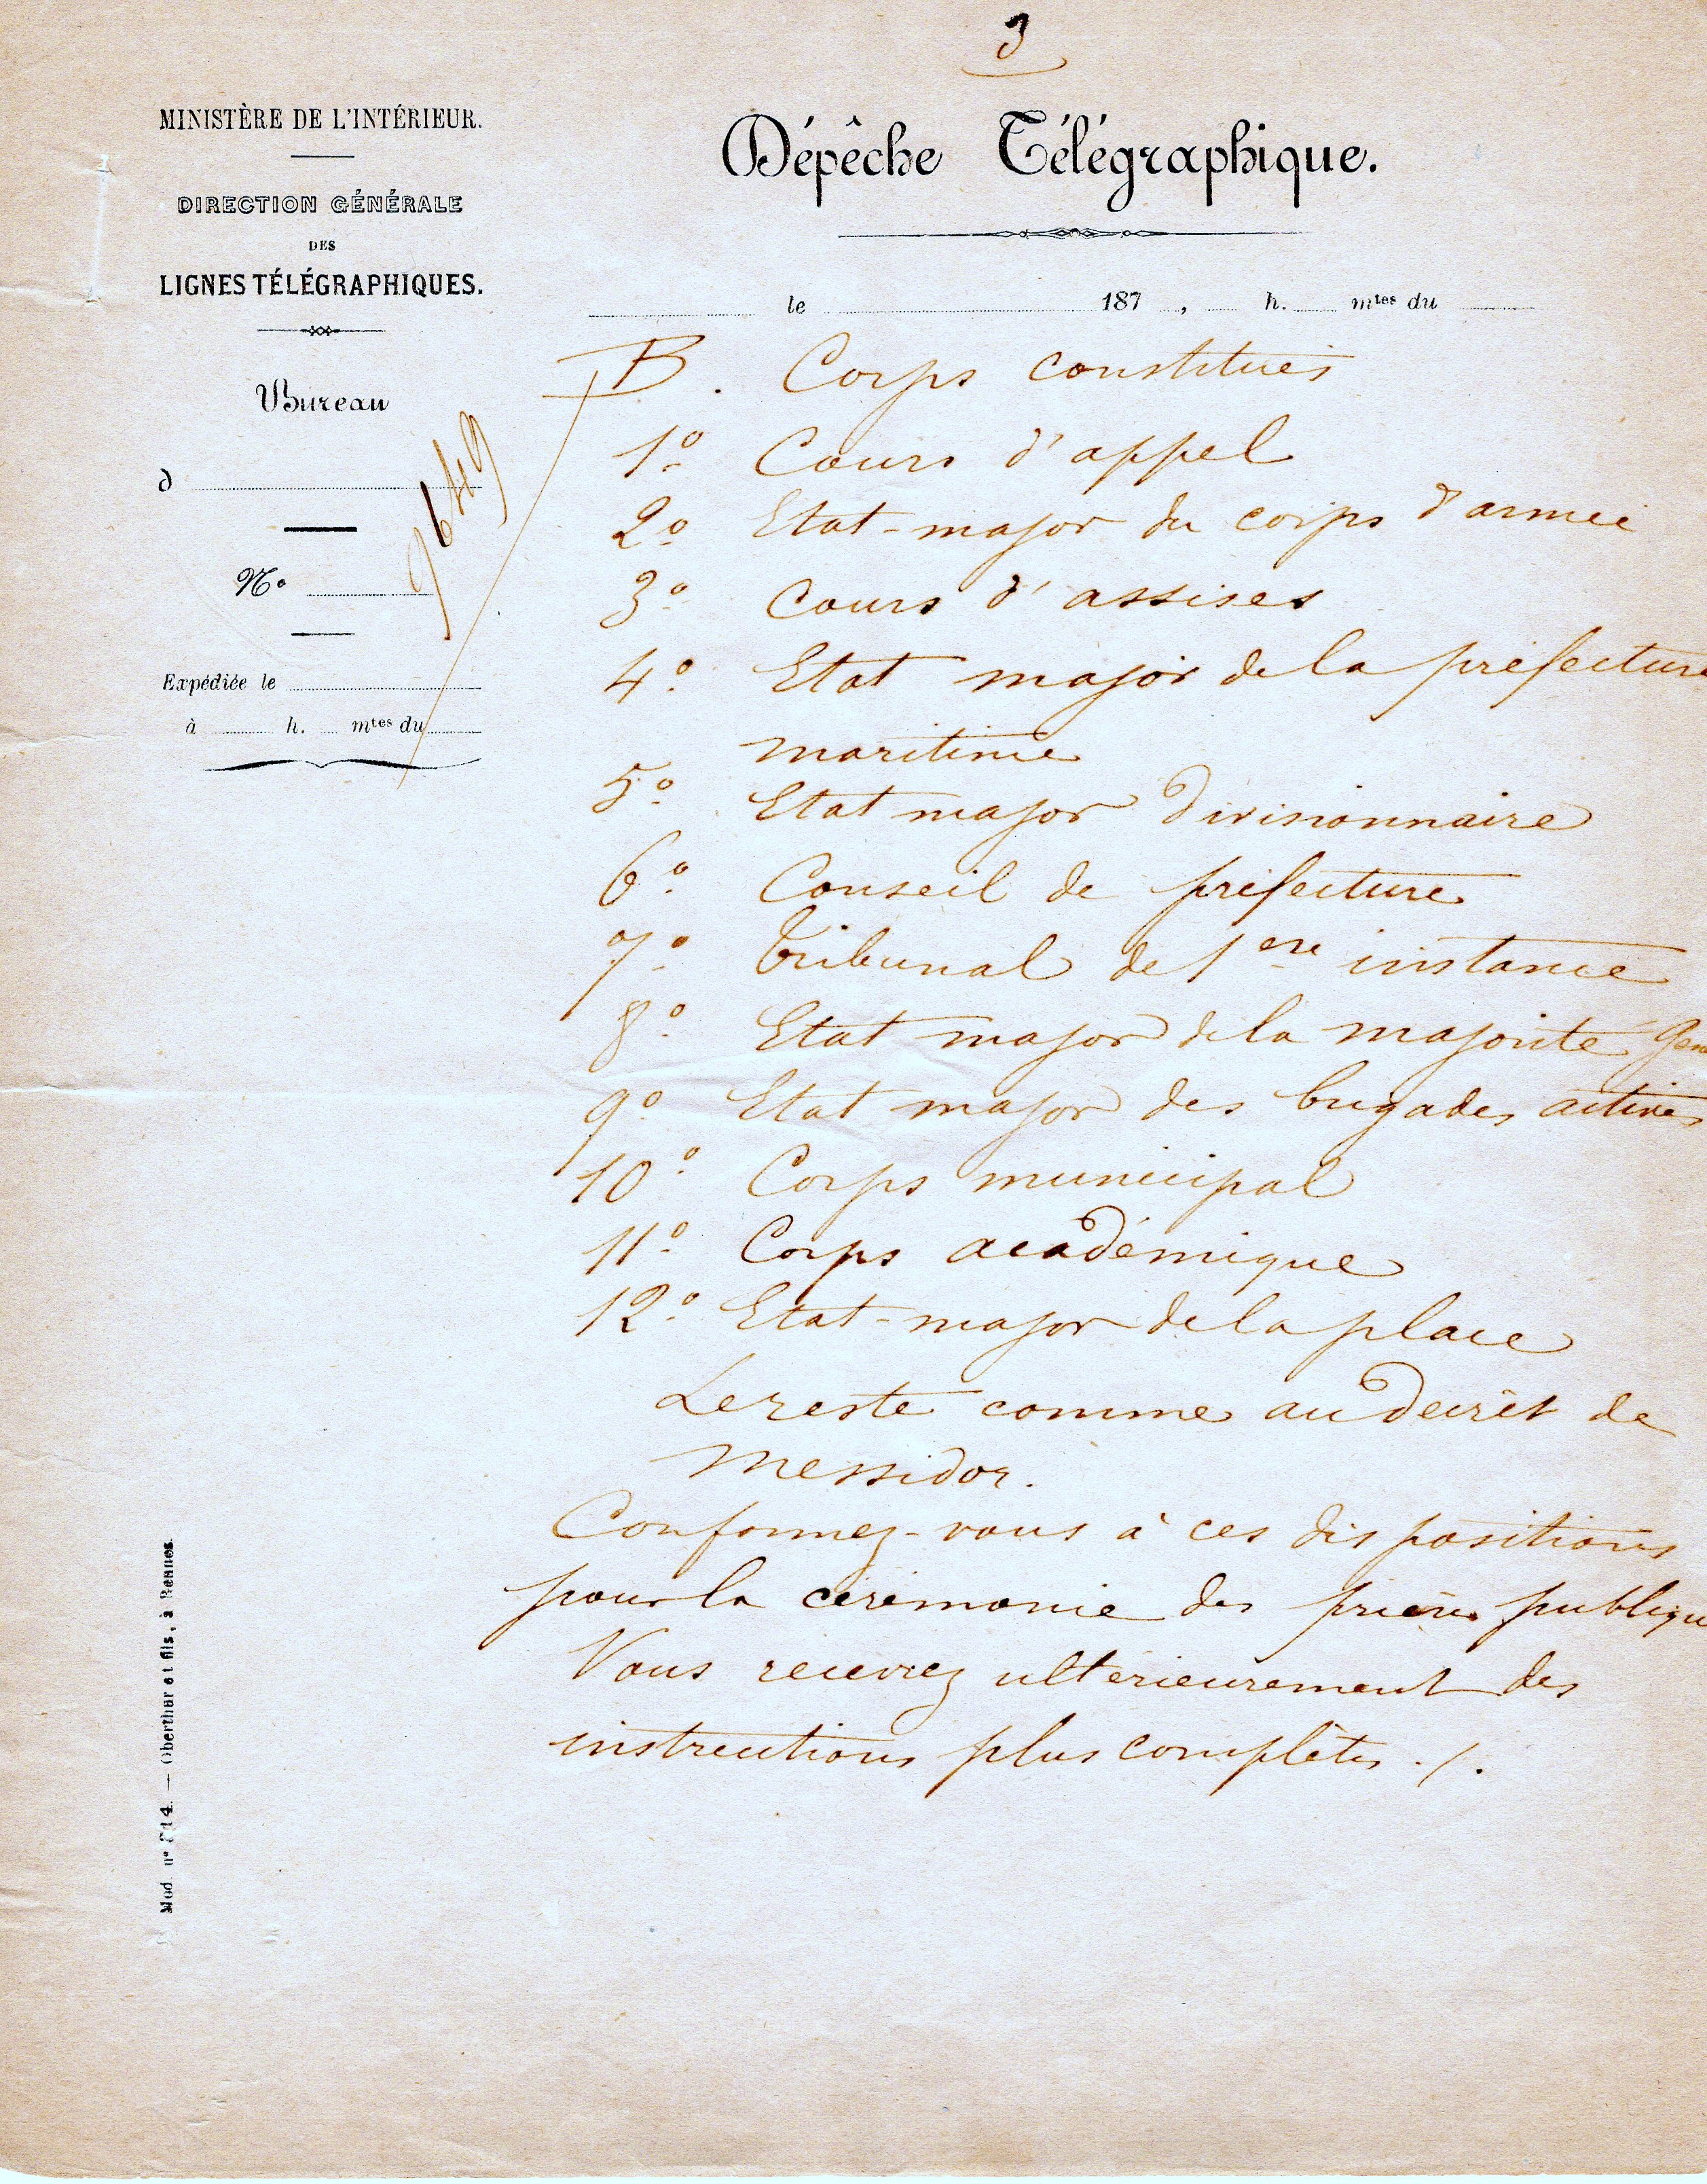 3
MINISTÈRE DE L'INTÉRIEUR.
DIRECTION GÉNÉRALE
DES
LIGNES TÉLÉGRAPHIQUES.
Bureau
d
N°
9649
Expédiée le
à h. mtes du
Dépêche Télégraphique.
le 187 , h. mtes du
B. Corps constitués
1° Cours d'appel
2° Etat-major du corps d'armée
3° Cours d'assises
4° Etat major de la préfecture
maritime
5° Etat major divisionnaire
6° Conseil de préfecture
7° Tribunal de 1ere instance
8° Etat major de la majorité gen
9° Etat major des brigades actives
10° Corps municipal
11° Corps académique
12° Etat-major de la place
Le reste comme au décrèt de
Messidor.
Conformez-vous à ces dispositions
pour la cérémonie des prières publiqu
Vous recevrez ultérieurement des
instructions plus complètes ./.
Mod. n° 214. — Oberthur et fils, à Rennes.